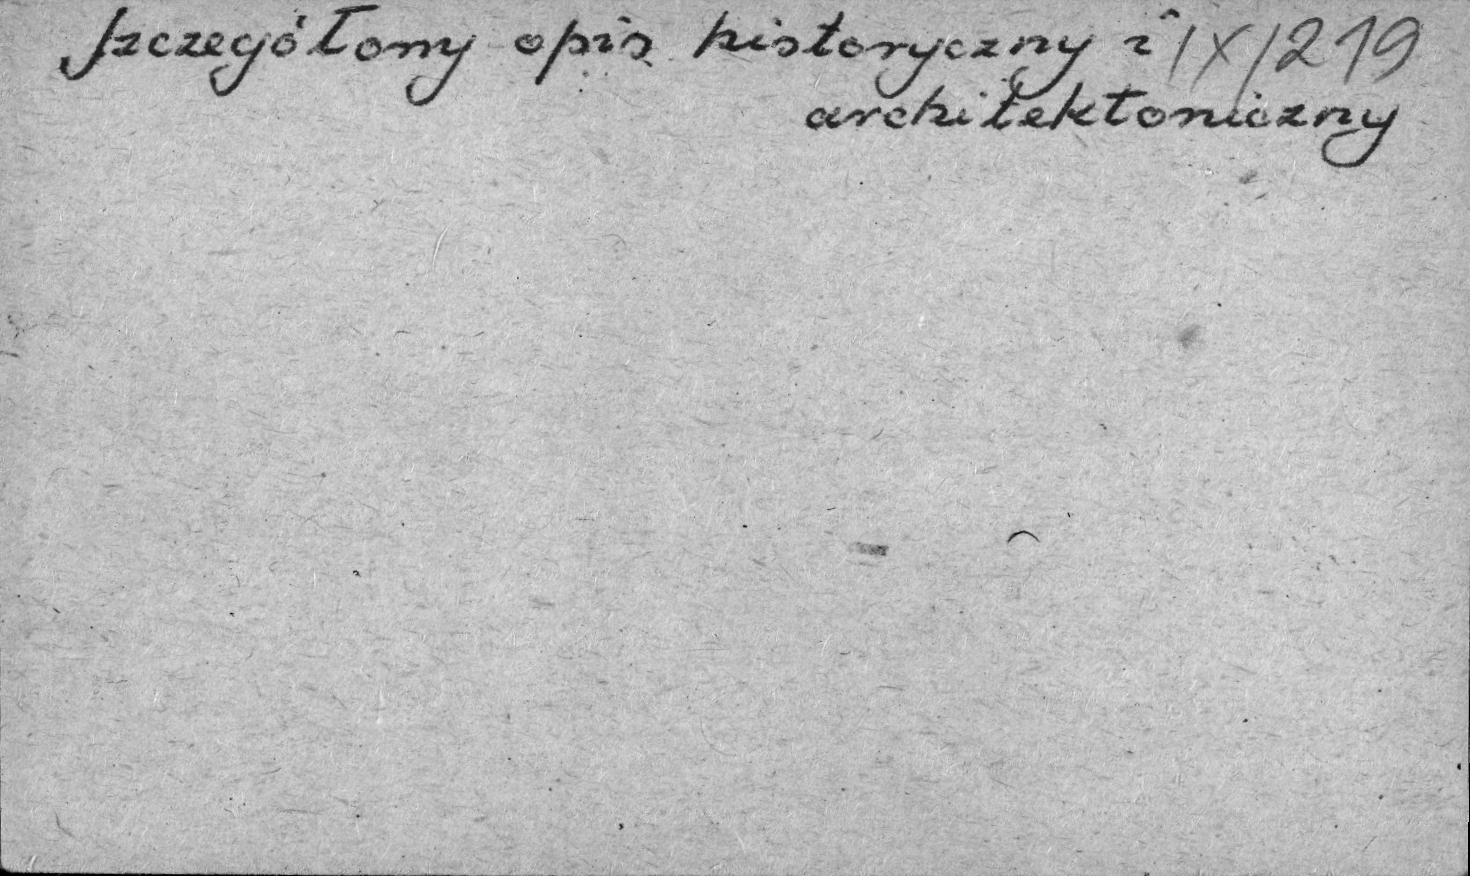 Szczegółony opis historyczny i IX/219
architektoniczny